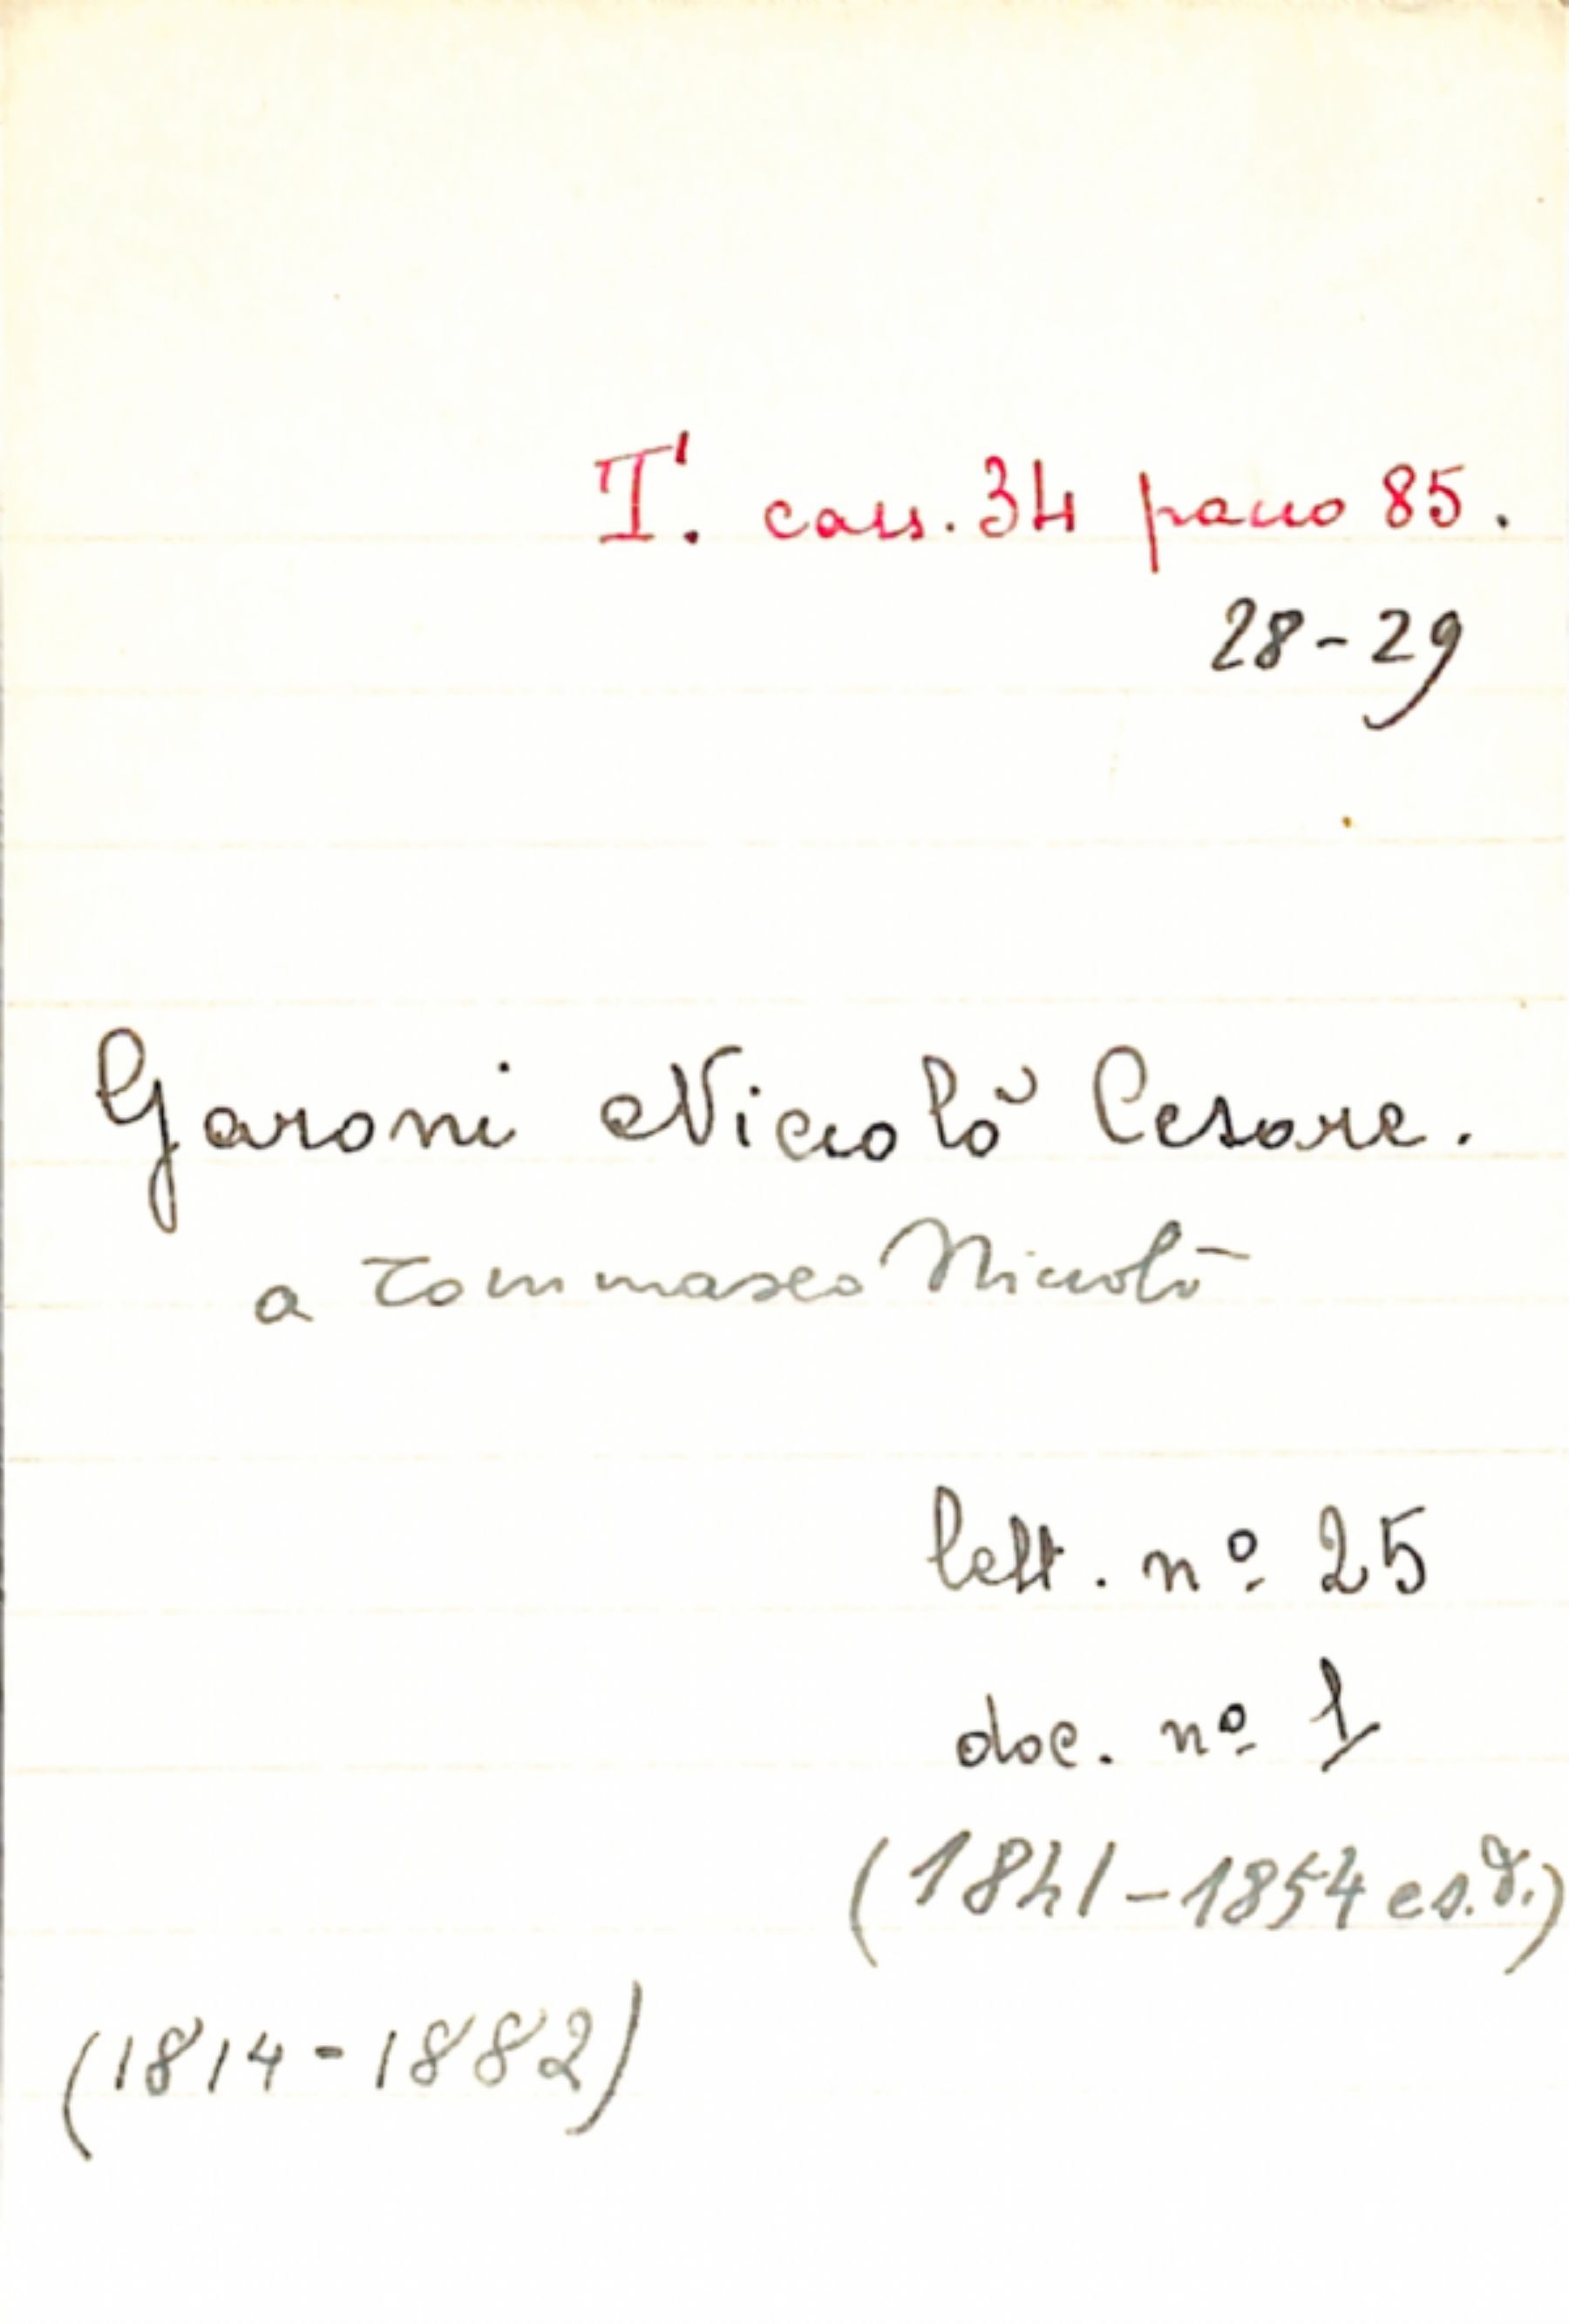 T'. cass. 34 pacco 85.
28-29
Garoni Niccolò Cesare.
a Tommaseo Niccolò
lett. nº 25
doc. nº 1
(1841-1854 e s.d.)
(1814-1882)